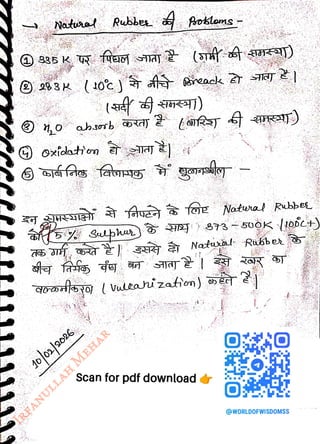 → Natural Rubber की Problems -
① 335K पर पिघल जाता है (गर्मी की समस्या)
② 283K (10°C) से नीचे Breack हो जाता है |
(सर्दी की समस्या)
③ H₂O absorb करता है (बारिश की समस्या)
④ Oxidation हो जाता है |
⑤ कार्बनिक विलायक में घुलनशील -
इन समस्याओं से निपटने के लिए Natural Rubber
को 5% Sulpher के साथ 373-500K (100°C+)
तक गर्म करते है | उससे दो Natural Rubber के
बीच तिर्यक बंध बन जाता है | इसे रबर का
वल्कनीकरण (Vulcanization) कहते है |
10/02/2026
IRFANULLAH MEHAR
Scan for pdf download 👉
@WORLDOFWISDOMSS